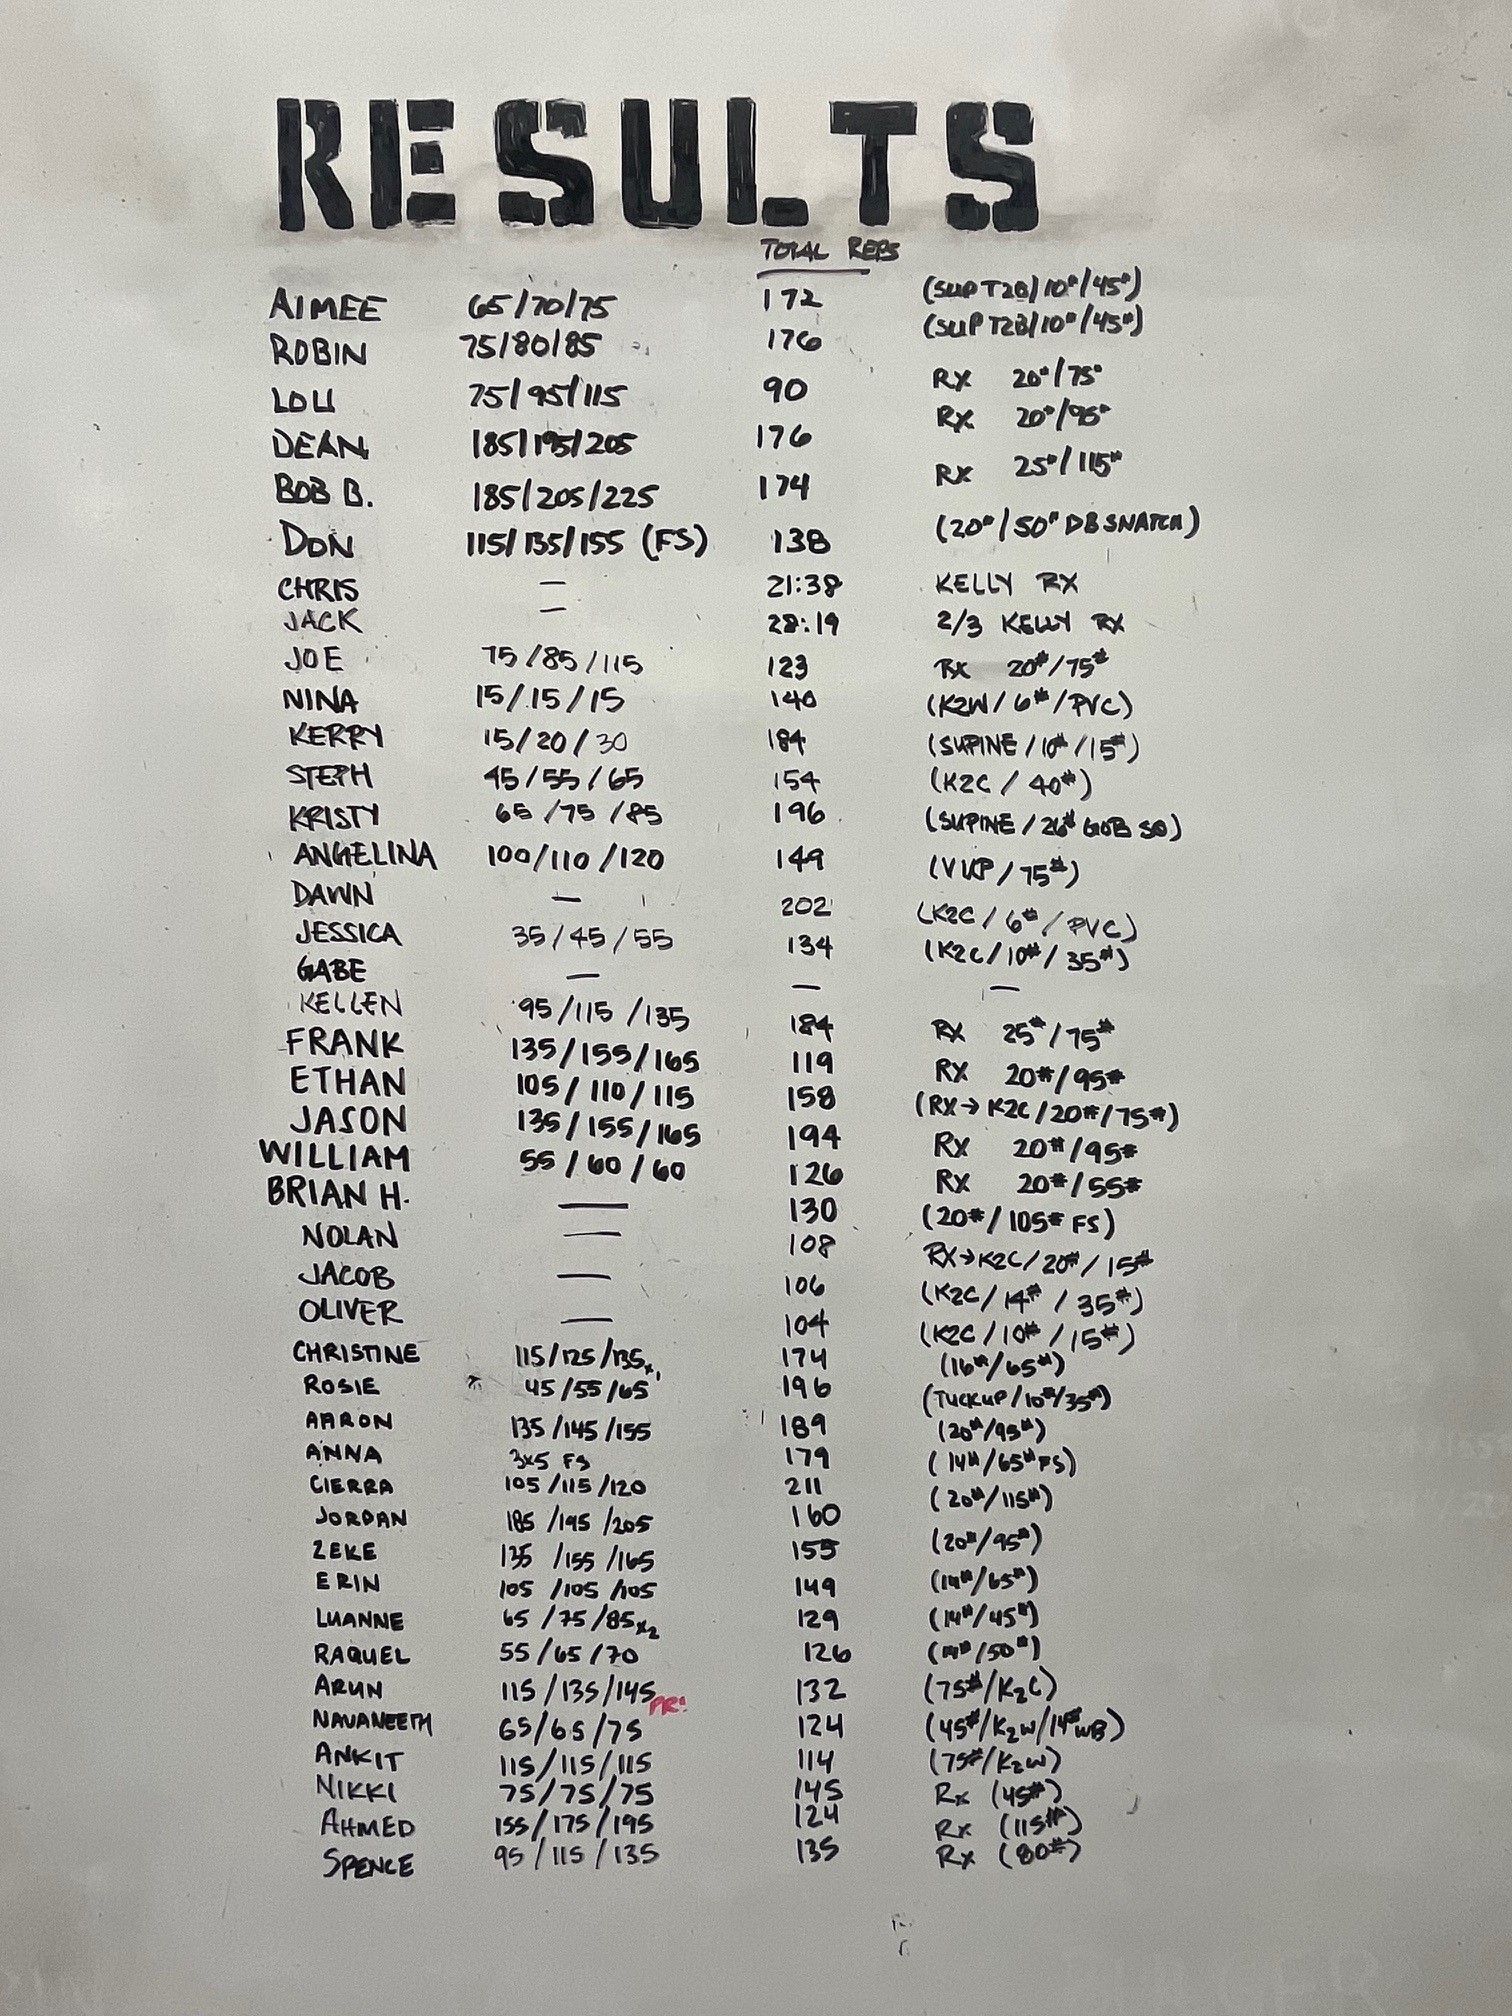 RESULTS
TOTAL REPS
AIMEE 65/70/75 172 (SUP T2B/10#/45#)
ROBIN 75/80/85 176 (SUP T2B/10#/45#)
LOU 75/95/115 90 RX 20#/75#
DEAN 185/195/205 176 RX 20#/95#
BOB B. 185/205/225 174 RX 25#/115#
DON 115/135/155 (FS) 138 (20#/50# DB SNATCH)
CHRIS — 21:38 KELLY RX
JACK — 28:19 2/3 KELLY RX
JOE 75/85/115 123 RX 20#/75#
NINA 15/15/15 140 (K2W/6#/PVC)
KERRY 15/20/30 184 (SUPINE/10#/15#)
STEPH 45/55/65 154 (K2C/40#)
KRISTY 65/75/85 196 (SUPINE/26# GOB SQ)
ANGELINA 100/110/120 149 (VUP/75#)
DAWN — 202 (K2C/6#/PVC)
JESSICA 35/45/55 134 (K2C/10#/35#)
GABE — — —
KELLEN 95/115/135 184 RX 25#/75#
FRANK 135/155/165 119 RX 20#/95#
ETHAN 105/110/115 158 (RX→K2C/20#/75#)
JASON 135/155/165 194 RX 20#/95#
WILLIAM 55/60/60 126 RX 20#/55#
BRIAN H. — 130 (20#/105# FS)
NOLAN — 108 RX→K2C/20#/15#
JACOB — 106 (K2C/14#/35#)
OLIVER — 104 (K2C/10#/15#)
CHRISTINE 115/125/135x1 174 (16#/65#)
ROSIE 45/55/65 196 (TUCKUP/10#/35#)
AARON 135/145/155 189 (20#/95#)
ANNA 3x5 FS 179 (14#/65# FS)
CIERRA 105/115/120 211 (20#/115#)
JORDAN 185/195/205 160 (20#/95#)
ZEKE 135/155/165 155 (14#/65#)
ERIN 105/105/105 149 (14#/45#)
LUANNE 65/75/85x2 129 (14#/50#)
RAQUEL 55/65/70 126
ARUN 115/135/145 PR! 132 (75#/K2C)
NAVANEETH 65/65/75 124 (45#/K2W/14# WB)
ANKIT 115/115/115 114 (75#/K2W)
NIKKI 75/75/75 145 Rx (45#)
AHMED 155/175/195 124 Rx (115#)
SPENCE 95/115/135 135 Rx (80#)